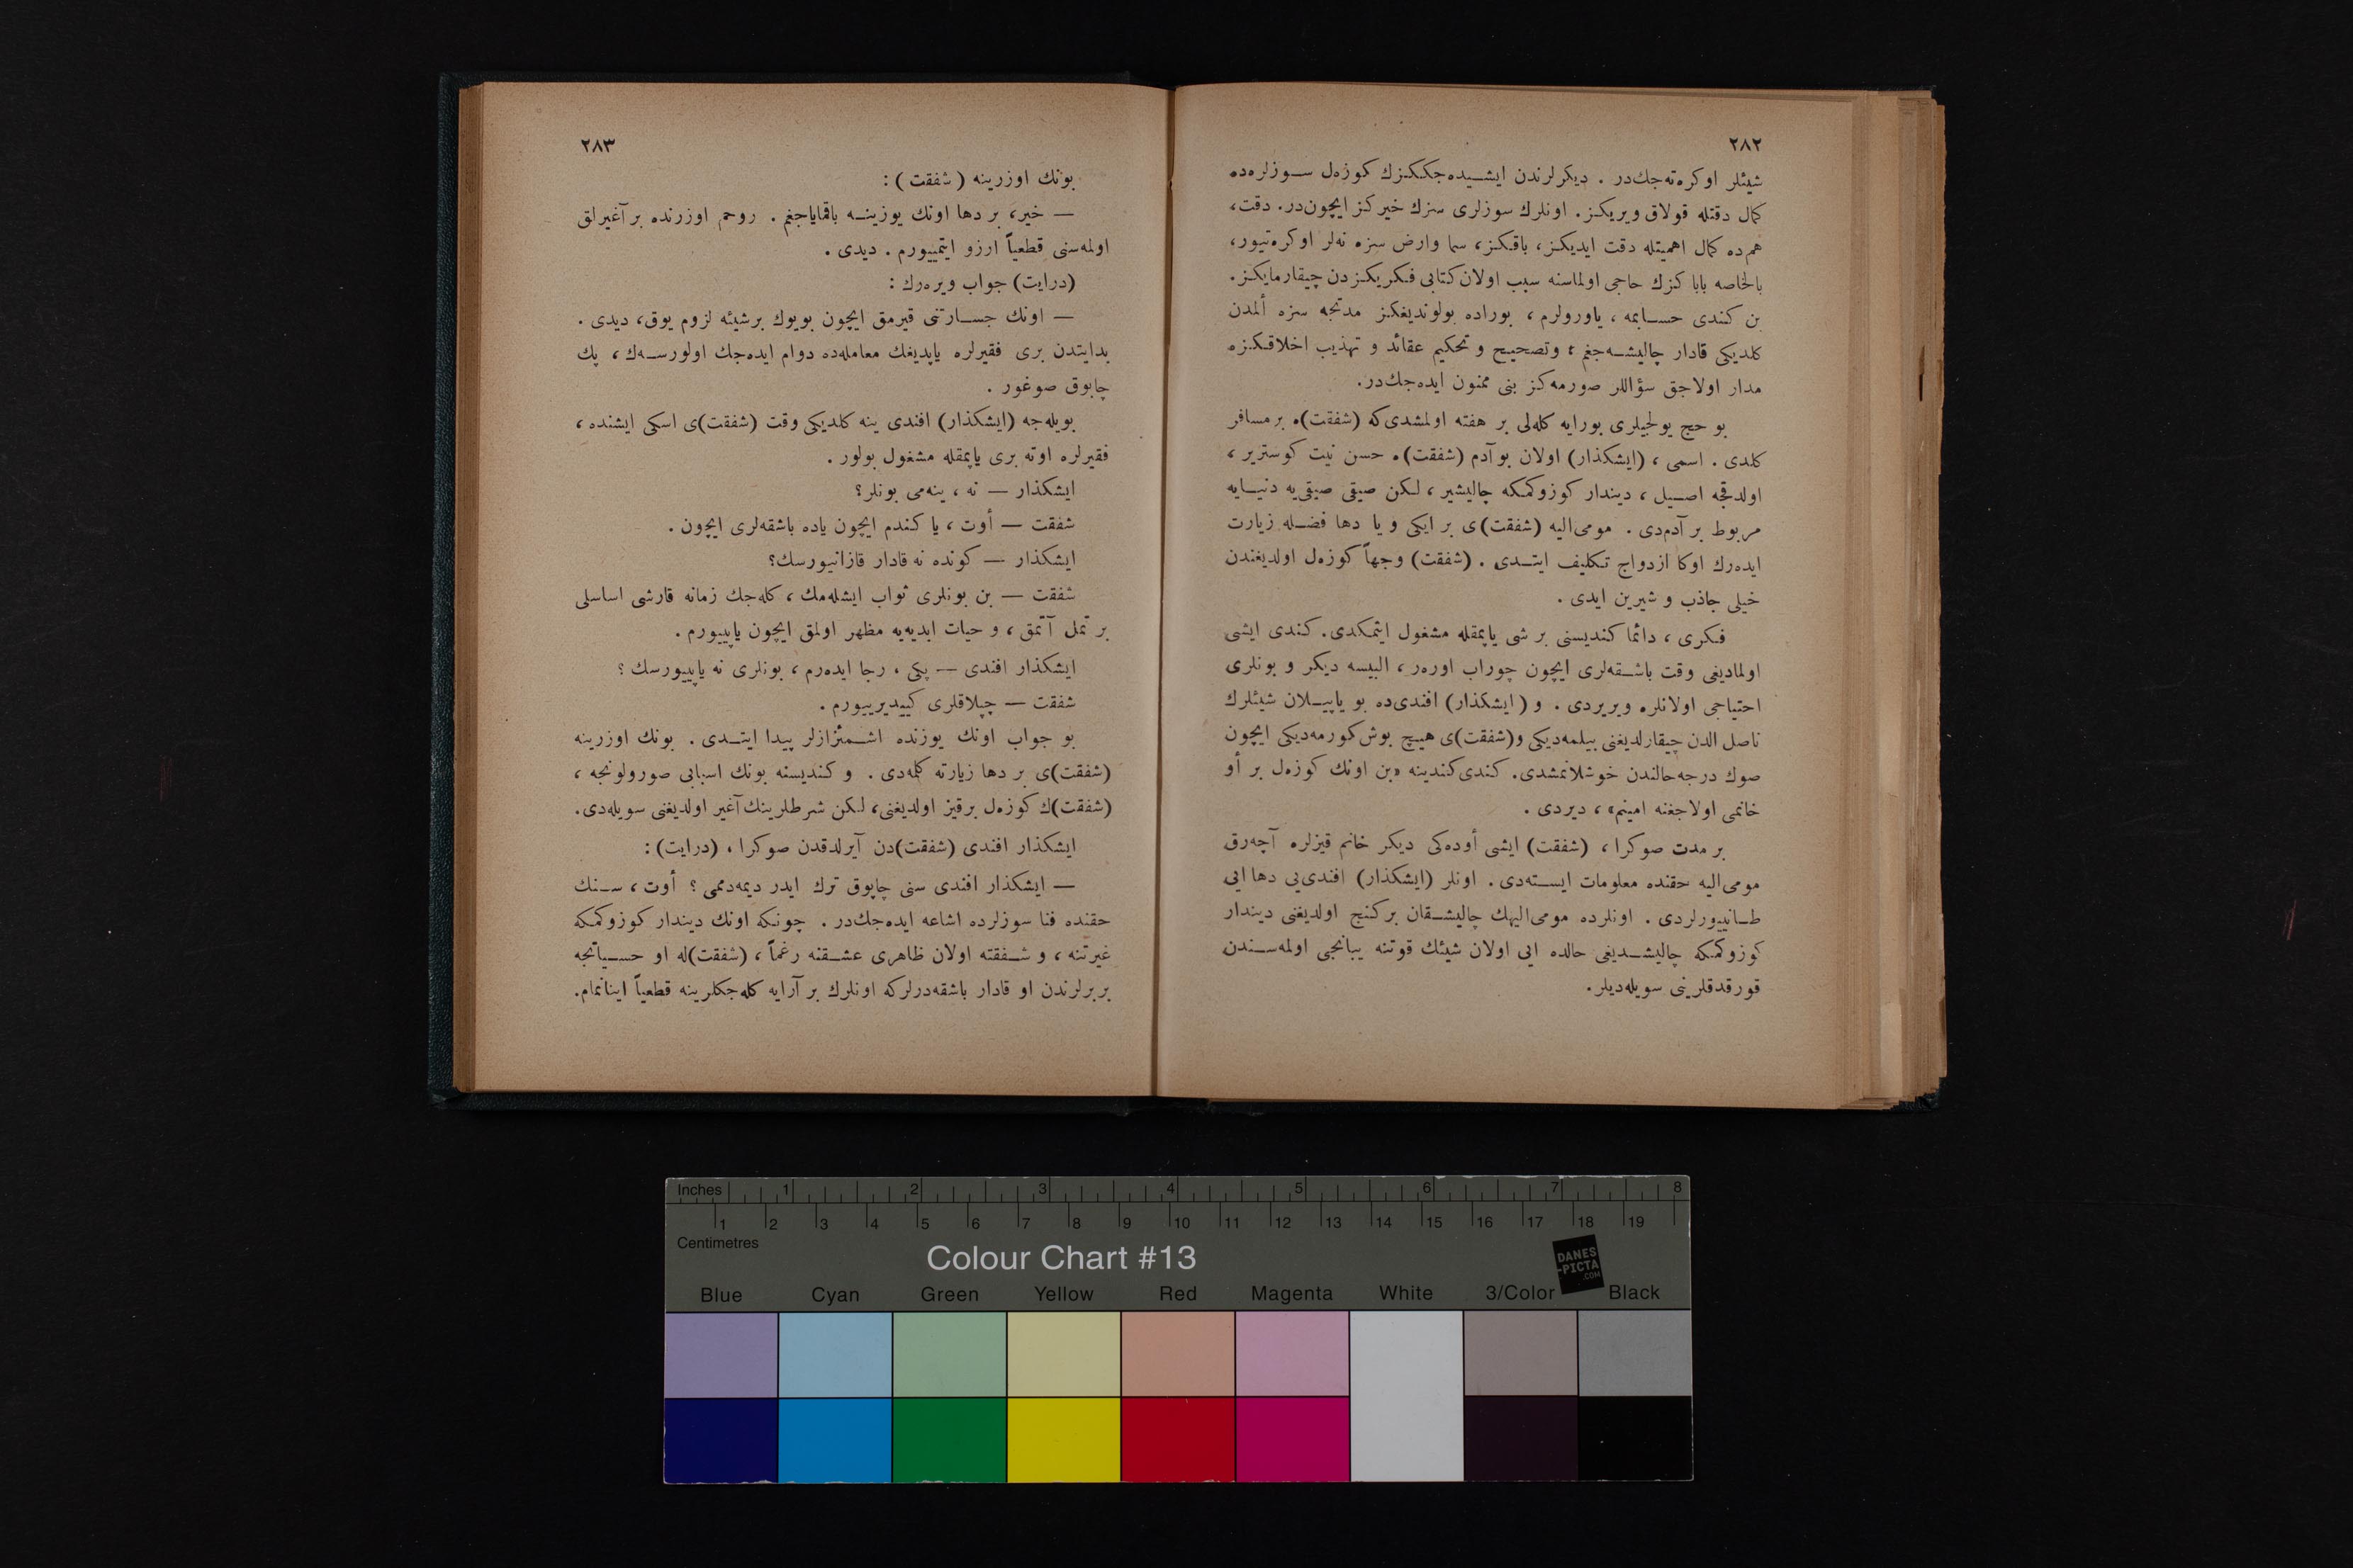 ٢٨٢
شیئلر اوكره‌ته‌جك‌در . دیكرلرندن ایشیده‌جككزك كوزه‌ل سوزلره‌ده
كمال دقتله قولاق ویریكز . اونلرك سوزلری سزك خیركز ایچون‌در. دقت،
هم‌ده كمال اهمیتله دقت ایدیكز، باقكز، سما وارض سزه نه‌لر اوكره‌تیور،
بالخاصه باباكزك حاجی اولماسنه سبب اولان كتابی فكریكزدن چیقارمایكز.
بن كندی حسابمه ، یاورولرم ، بوراده بولوندیغكز مدتجه سزه ألمدن
كلدیكی قادار چالیشه‌جغم ؛ وتصحیح و تحكیم عقائد و تهذیب اخلاقكزه
مدار اولاجق سؤاللر صورمه‌كز بنی ممنون ایده‌جك‌در.
بو حج یولجیلری بورایه كله‌لی بر هفته اولمشدی‌كه (شفقت)ه بر مسافر
كلدی . اسمی ، (ایشكذار) اولان بو آدم (شفقت)ه حسن نیت كوستریر ،
اولدقجه اصیل ، دیندار كوزوكمكه چالیشیر ، لكن صیقی صیقی‌یه دنیایه
مربوط بر آدم‌دی . مومی‌الیه (شفقت)ی بر ایكی و یا دها فضله زیارت
ایده‌رك اوكا ازدواج تكلیف ایتدی . (شفقت) وجهاً كوزه‌ل اولدیغندن
خیلی جاذب و شیرین ایدی .
فكری ، دائما كندیسنی بر شی یاپمقله مشغول ایتمكدی. كندی ایشی
اولمادیغی وقت باشقه‌لری ایچون چوراب اوره‌ر ، البیسه دیكر و بونلری
احتیاجی اولانلره ویریردی . و (ایشكذار) افندی‌ده بو یاپیلان شیئلرك
ناصل الدن چیقارلدیغنی بیلمه‌دیكی و(شفقت)ی هیچ بوش كورمه‌دیكی ایچون
صوك درجه حالندن خوشلانمشدی. كندی كندینه «بن اونك كوزه‌ل بر أو
خانمی اولاجغنه امینم» ، دیردی .
بر مدت صوكرا ، (شفقت) ایشی أوده‌كی دیكر خانم قیزلره آچه‌رق
مومی‌الیه حقنده معلومات ایسته‌دی . اونلر (ایشكذار) افندی‌یی دها ایی
طانییورلردی . اونلرده مومی‌الیهك چالیشقان بر كنج اولدیغنی دیندار
كوزوكمكه چالیشدیغی حالده ایی اولان شیئك قوتنه یبانجی اولمه‌سندن
قورقدقلرینی سویله‌دیلر.
٢٨٣
بونك اوزرینه (شفقت) :
— خیر، بر دها اونك یوزینه باقمایاجغم . روحم اوزرنده بر آغیرلق
اولمه‌سنی قطعیاً ارزو ایتمییورم . دیدی .
(درایت) جواب ویره‌رك :
— اونك جسارتنی قیرمق ایچون بویوك برشیئه لزوم یوق، دیدی .
بدایتدن بری فقیرلره یاپدیغك معامله‌ده دوام ایده‌جك اولورسه‌ك ، پك
چابوق صوغور .
بویله‌جه (ایشكذار) افندی ینه كلدیكی وقت (شفقت)ی اسكی ایشنده ،
فقیرلره اوته بری یاپمقله مشغول بولور .
ایشكذار — نه ، ینه‌می بونلر؟
شفقت — أوت ، یا كندم ایچون یاده باشقه‌لری ایچون .
ایشكذار — كونده نه قادار قازانیورسك؟
شفقت — بن بونلری ثواب ایشله‌مك ، كله‌جك زمانه قارشی اساسلی
بر تمل آتمق ، و حیات ابدیه‌یه مظهر اولمق ایچون یاپییورم .
ایشكذار افندی — پكی ، رجا ایده‌رم ، بونلری نه یاپییورسك ؟
شفقت — چپلاقلری كییدیرییورم .
بو جواب اونك یوزنده اشمئزازلر پیدا ایتدی . بونك اوزرینه
(شفقت)ی بر دها زیارته كلمه‌دی . و كندیسنه بونك اسبابی صورولونجه ،
(شفقت)ك كوزه‌ل برقیز اولدیغنی، لكن شرطلرینك آغیر اولدیغنی سویله‌دی.
ایشكذار افندی (شفقت)دن آیرلدقدن صوكرا ، (درایت) :
— ایشكذار افندی سنی چاپوق ترك ایدر دیمه‌دممی ؟ أوت ، سنك
حقنده فنا سوزلرده اشاعه ایده‌جك‌در . چونكه اونك دیندار كوزوكمكه
غیرتنه ، و شفقته اولان ظاهری عشقنه رغماً ، (شفقت)له او حسیاتجه
بربرلرندن او قادار باشقه‌درلركه اونلرك بر آرایه كله‌جكلرینه قطعیاً اینانمام.
Inches 1 2 3 4 5 6 7 8
1 2 3 4 5 6 7 8 9 10 11 12 13 14 15 16 17 18 19
Centimetres
Colour Chart #13
DANES
-PICTA
.COM
Blue Cyan Green Yellow Red Magenta White 3/Color Black